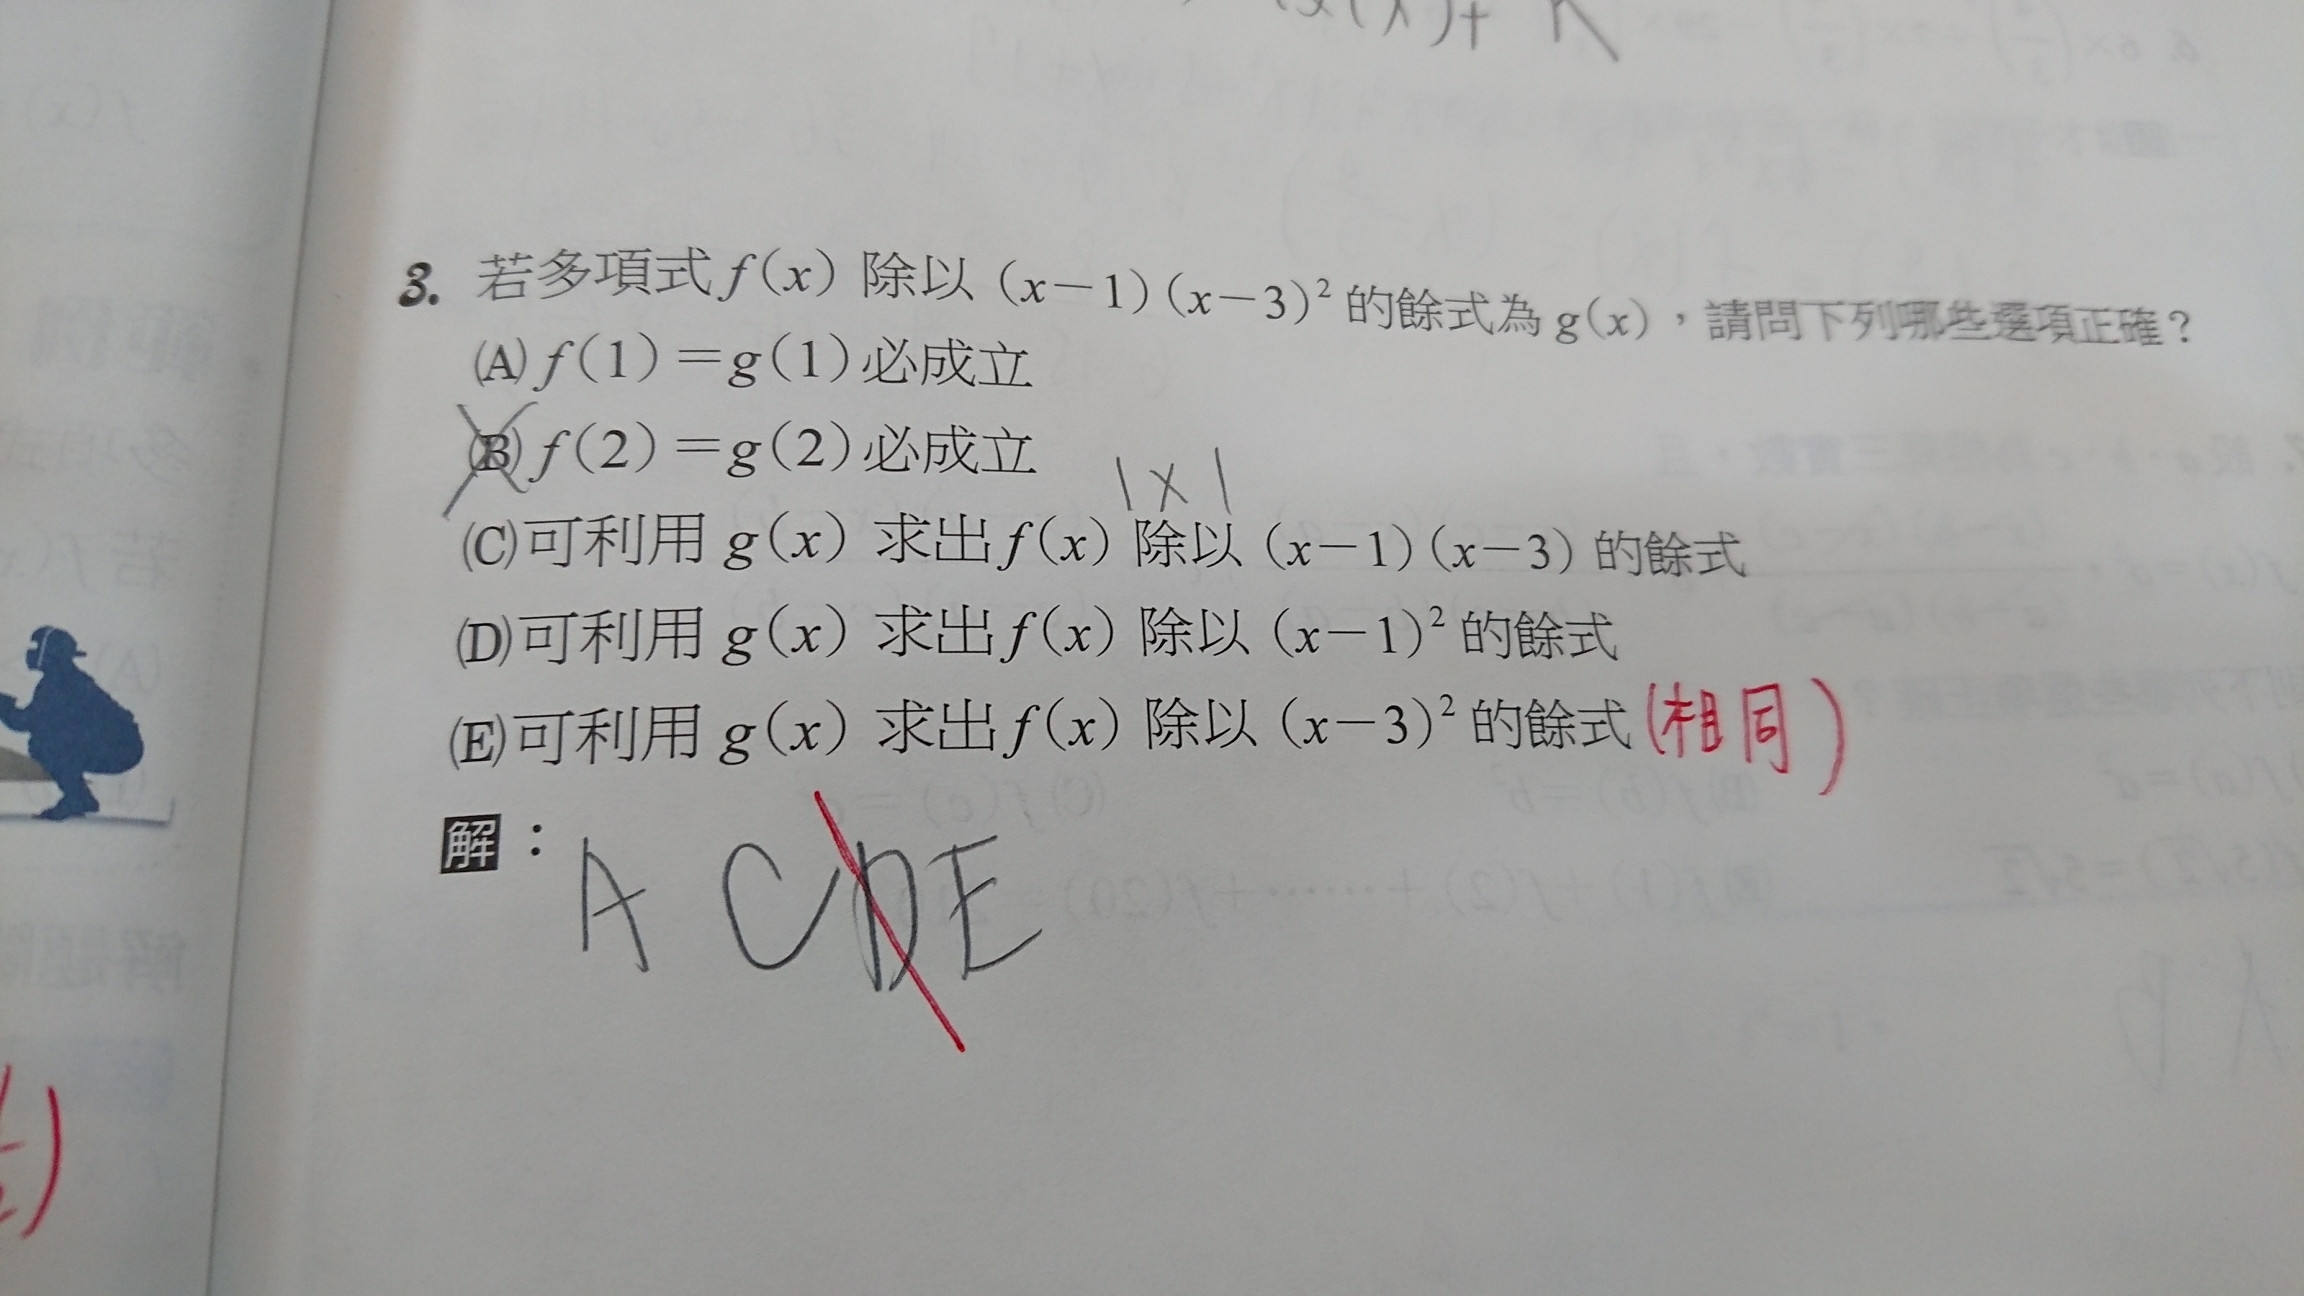 3. 若多項式 f(x) 除以 (x−1)(x−3)² 的餘式為 g(x)，請問下列哪些選項正確？
(A) f(1)＝g(1) 必成立
(B) f(2)＝g(2) 必成立
|x|
(C) 可利用 g(x) 求出 f(x) 除以 (x−1)(x−3) 的餘式
(D) 可利用 g(x) 求出 f(x) 除以 (x−1)² 的餘式
(E) 可利用 g(x) 求出 f(x) 除以 (x−3)² 的餘式 (相同)
解：A C D E